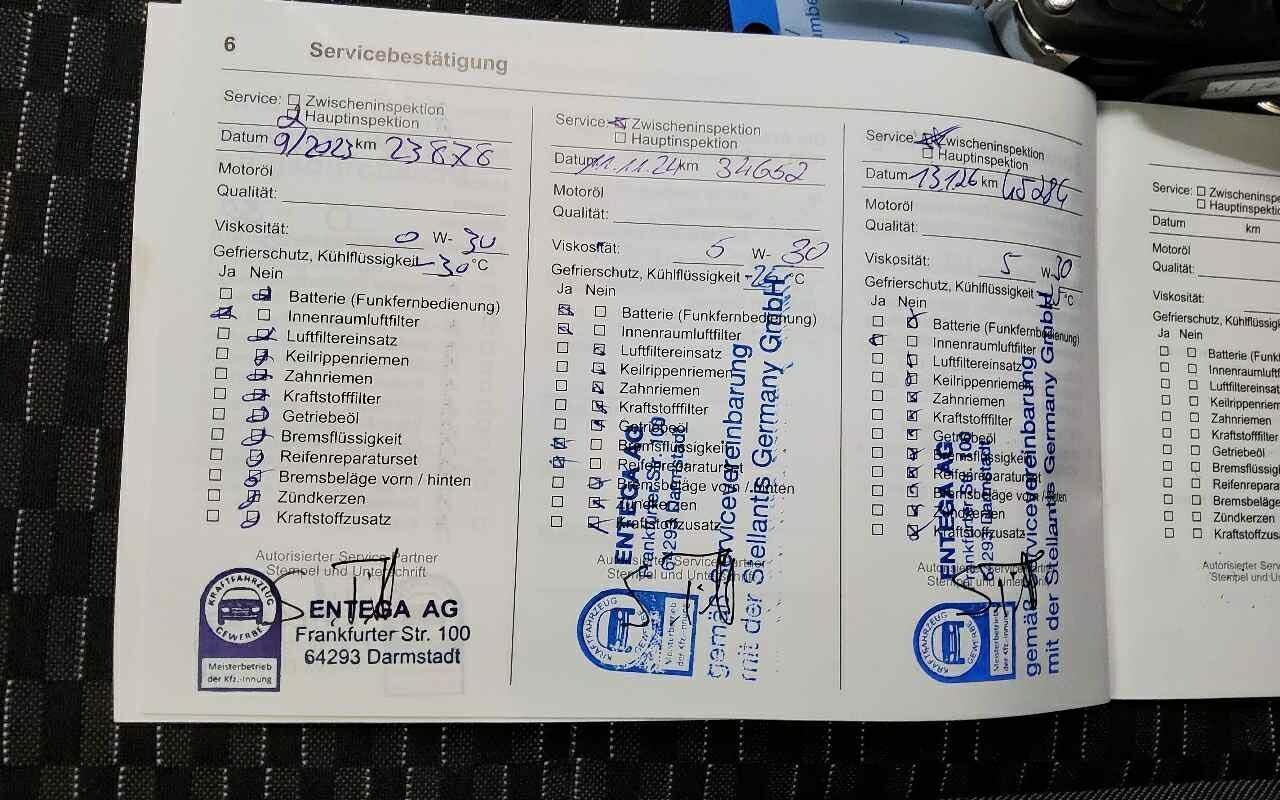 6 Servicebestätigung
Service: Zwischeninspektion
Hauptinspektion
Datum 9/2023 km 23878
Motoröl
Qualität:
Viskosität: 0 W- 30
Gefrierschutz, Kühlflüssigkeit -30 °C
Ja Nein
Batterie (Funkfernbedienung)
Innenraumluftfilter
Luftfiltereinsatz
Keilrippenriemen
Zahnriemen
Kraftstofffilter
Getriebeöl
Bremsflüssigkeit
Reifenreparaturset
Bremsbeläge vorn / hinten
Zündkerzen
Kraftstoffzusatz
Autorisierter Service Partner
Stempel und Unterschrift
KRAFTFAHRZEUG
GEWERBE
Meisterbetrieb
der Kfz.-Innung
ENTEGA AG
Frankfurter Str. 100
64293 Darmstadt
Service: Zwischeninspektion
Hauptinspektion
Datum 11.11.24 km 34652
Motoröl
Qualität:
Viskosität: 5 W- 30
Gefrierschutz, Kühlflüssigkeit -25 °C
Ja Nein
Batterie (Funkfernbedienung)
Innenraumluftfilter
Luftfiltereinsatz
Keilrippenriemen
Zahnriemen
Kraftstofffilter
Getriebeöl
Bremsflüssigkeit
Reifenreparaturset
Bremsbeläge vorn / hinten
Zündkerzen
Kraftstoffzusatz
Autorisierter Service Partner
Stempel und Unterschrift
KRAFTFAHRZEUG
Meisterbetrieb
der Kfz.-Innung
ENTEGA AG
Frankfurter Str. 100
64293 Darmstadt
gemäß Servicevereinbarung
mit der Stellantis Germany GmbH
Service: Zwischeninspektion
Hauptinspektion
Datum 13.1.26 km 45284
Motoröl
Qualität:
Viskosität: 5 W- 30
Gefrierschutz, Kühlflüssigkeit °C
Ja Nein
Batterie (Funkfernbedienung)
Innenraumluftfilter
Luftfiltereinsatz
Keilrippenriemen
Zahnriemen
Kraftstofffilter
Getriebeöl
Bremsflüssigkeit
Reifenreparaturset
Bremsbeläge vorn / hinten
Zündkerzen
Kraftstoffzusatz
Autorisierter Service Partner
Stempel und Unterschrift
KRAFTFAHRZEUG
GEWERBE
Meisterbetrieb
der Kfz.-Innung
ENTEGA AG
Frankfurter Str. 100
64293 Darmstadt
gemäß Servicevereinbarung
mit der Stellantis Germany GmbH
Service: Zwischeninspe
Hauptinspekti
Datum km
Motoröl
Qualität:
Viskosität:
Gefrierschutz, Kühlflüssig
Ja Nein
Batterie (Funkf
Innenraumluftf
Luftfiltereinsat
Keilrippenrieme
Zahnriemen
Kraftstofffilter
Getriebeöl
Bremsflüssig
Reifenrepara
Bremsbeläge
Zündkerzen
Kraftstoffzus
Autorisierter Servi
Stempel und Un